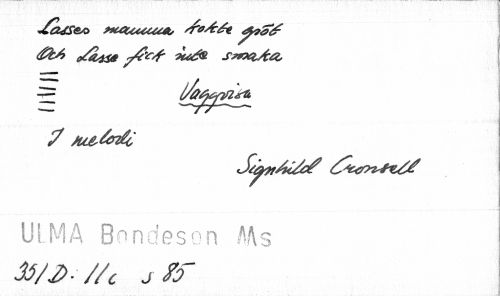 Lasses mamma kokte gröt
Och Lasse fick inte smaka
Vaggvisa
I melodi
Signhild Cronsell
ULMA Bondeson Ms
351 D. 11c s 85